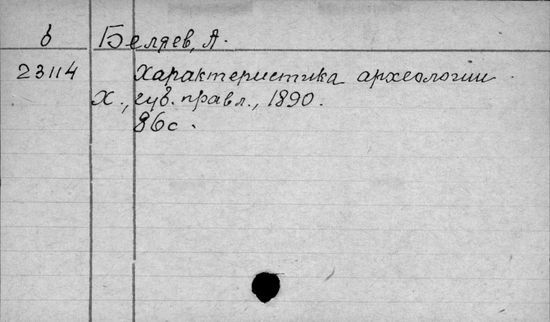 б Беляев, А.
23114 Характеристика археологии.
Х., губ. правл., 1890.
86с.